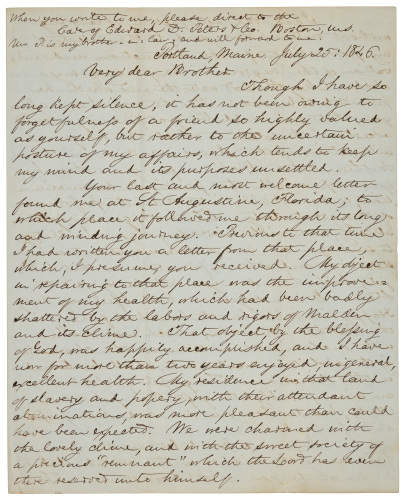 When you write to me, please direct to the
Care of Edward D. Peters & Co. Boston, Ms.
Mr P. is my brother-in-law, and will forward to me.
Portland, Maine. July 25: 1846.
Very dear Brother
Though I have so
long kept silence, it has not been owing to
forgetfulness of a friend so highly valued
as yourself, but rather to the uncertain
posture of my affairs, which tends to keep
my mind and its purposes unsettled.
Your last and most welcome letter
found me at St Augustine, Florida; to
which place it followed me through its long
and winding journey. Previous to that time
I had written you a letter from that place,
which, I presume, you received. My object
in repairing to that place was the improve-
ment of my health, which had been badly
shattered by the labors and rigors of Malden
and its clime. That object by the blessing
of God, was happily accomplished, and I have
now for more than two years enjoyed, in general,
excellent health. My residence in that land
of slavery and popery, with their attendant
abominations, was more pleasant than could
have been expected. We were charmed with
the lovely clime, and with the sweet society of
a precious "remnant" which the Lord has even
there reserved unto himself.